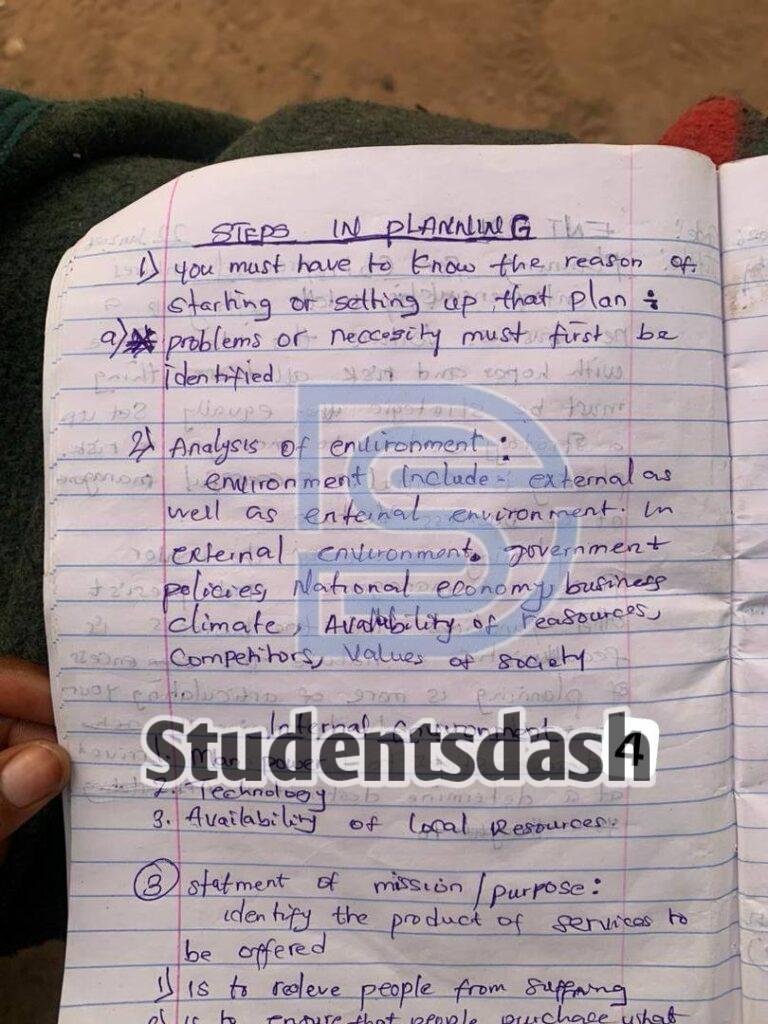 STEPS IN PLANNING
1) you must have to know the reason of
starting or setting up that plan :
a) problems or neccesity must first be
identified
2) Analysis of environment :
environment include - external as
well as enternal environment. In
external environment, government
policies, National economy, business
climate, Availability of reasources,
Competitors, Values of society
Internal environment
Studentsdash 4
1. Man power
2. Technology
3. Availability of Local Resources.
3 statment of mission / purpose :
identify the product of services to
be offered
1) is to releve people from suffering
is to ensure that people purchace what